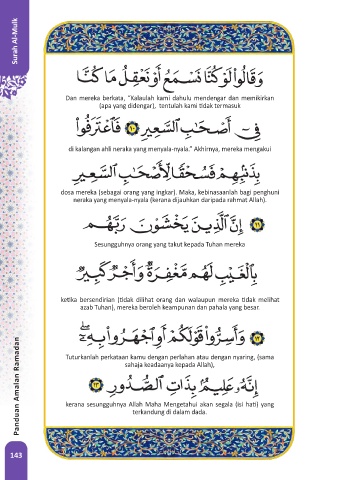 Surah Al-Mulk
وَقَالُوا۟ لَوْ كُنَّا نَسْمَعُ أَوْ نَعْقِلُ مَا كُنَّا
Dan mereka berkata, “Kalaulah kami dahulu mendengar dan memikirkan
(apa yang didengar), tentulah kami tidak termasuk
فِىٓ أَصْحَـٰبِ ٱلسَّعِيرِ ١٠ فَٱعْتَرَفُوا۟
di kalangan ahli neraka yang menyala-nyala.” Akhirnya, mereka mengakui
بِذَنۢبِهِمْ فَسُحْقًا لِّأَصْحَـٰبِ ٱلسَّعِيرِ
dosa mereka (sebagai orang yang ingkar). Maka, kebinasaanlah bagi penghuni
neraka yang menyala-nyala (kerana dijauhkan daripada rahmat Allah).
١١ إِنَّ ٱلَّذِينَ يَخْشَوْنَ رَبَّهُم
Sesungguhnya orang yang takut kepada Tuhan mereka
بِٱلْغَيْبِ لَهُم مَّغْفِرَةٌ وَأَجْرٌ كَبِيرٌ
ketika bersendirian (tidak dilihat orang dan walaupun mereka tidak melihat
azab Tuhan), mereka beroleh keampunan dan pahala yang besar.
١٢ وَأَسِرُّوا۟ قَوْلَكُمْ أَوِ ٱجْهَرُوا۟ بِهِۦٓ ۖ
Tuturkanlah perkataan kamu dengan perlahan atau dengan nyaring, (sama
sahaja keadaanya kepada Allah),
إِنَّهُۥ عَلِيمٌۢ بِذَاتِ ٱلصُّدُورِ ١٣
kerana sesungguhnya Allah Maha Mengetahui akan segala (isi hati) yang
terkandung di dalam dada.
Panduan Amalan Ramadan
143